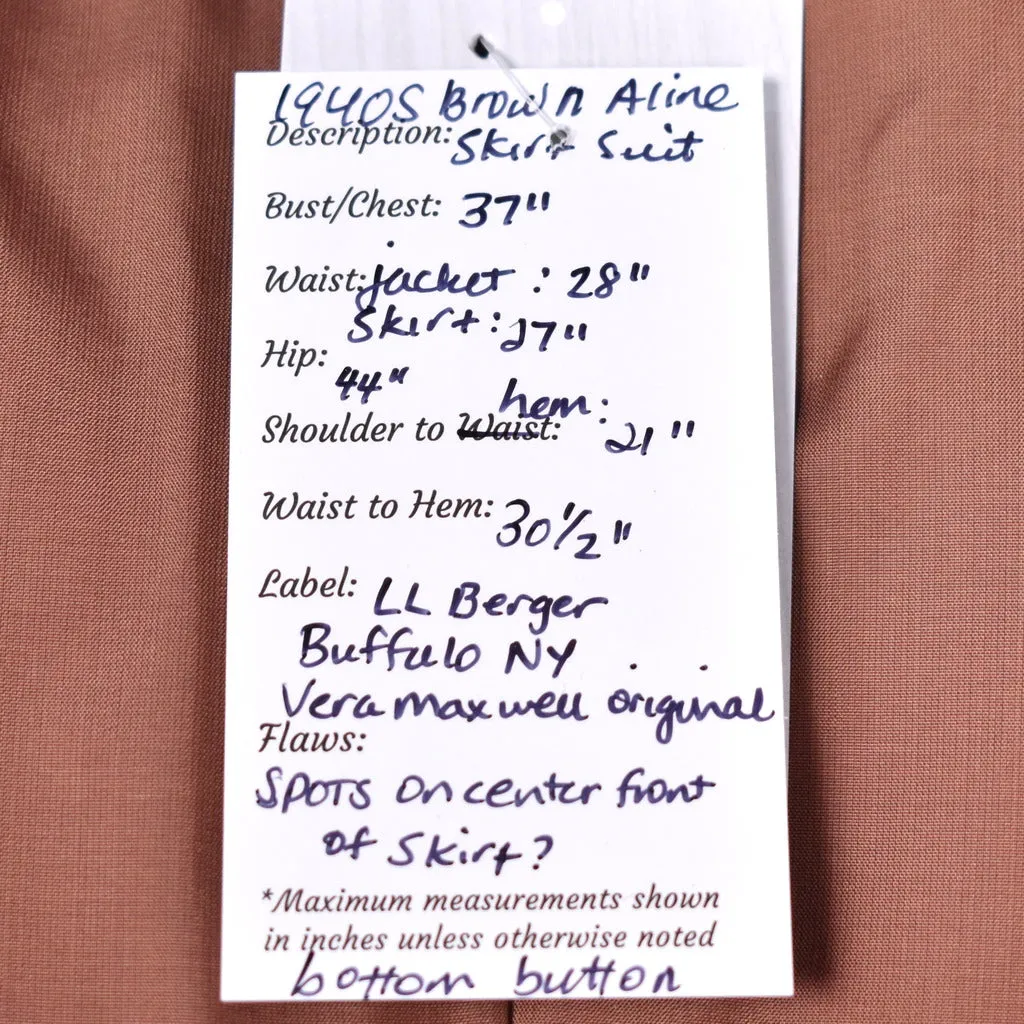 1940s Brown Aline
Description: Skirt Suit
Bust/Chest: 37"
Waist: jacket : 28"
Skirt: 27"
Hip:
44"
hem:
Shoulder to Waist: 21"
Waist to Hem: 30 1/2"
Label: LL Berger
Buffalo NY
Vera maxwell original
Flaws:
SPOTS on center front
of Skirt?
*Maximum measurements shown
in inches unless otherwise noted
bottom button